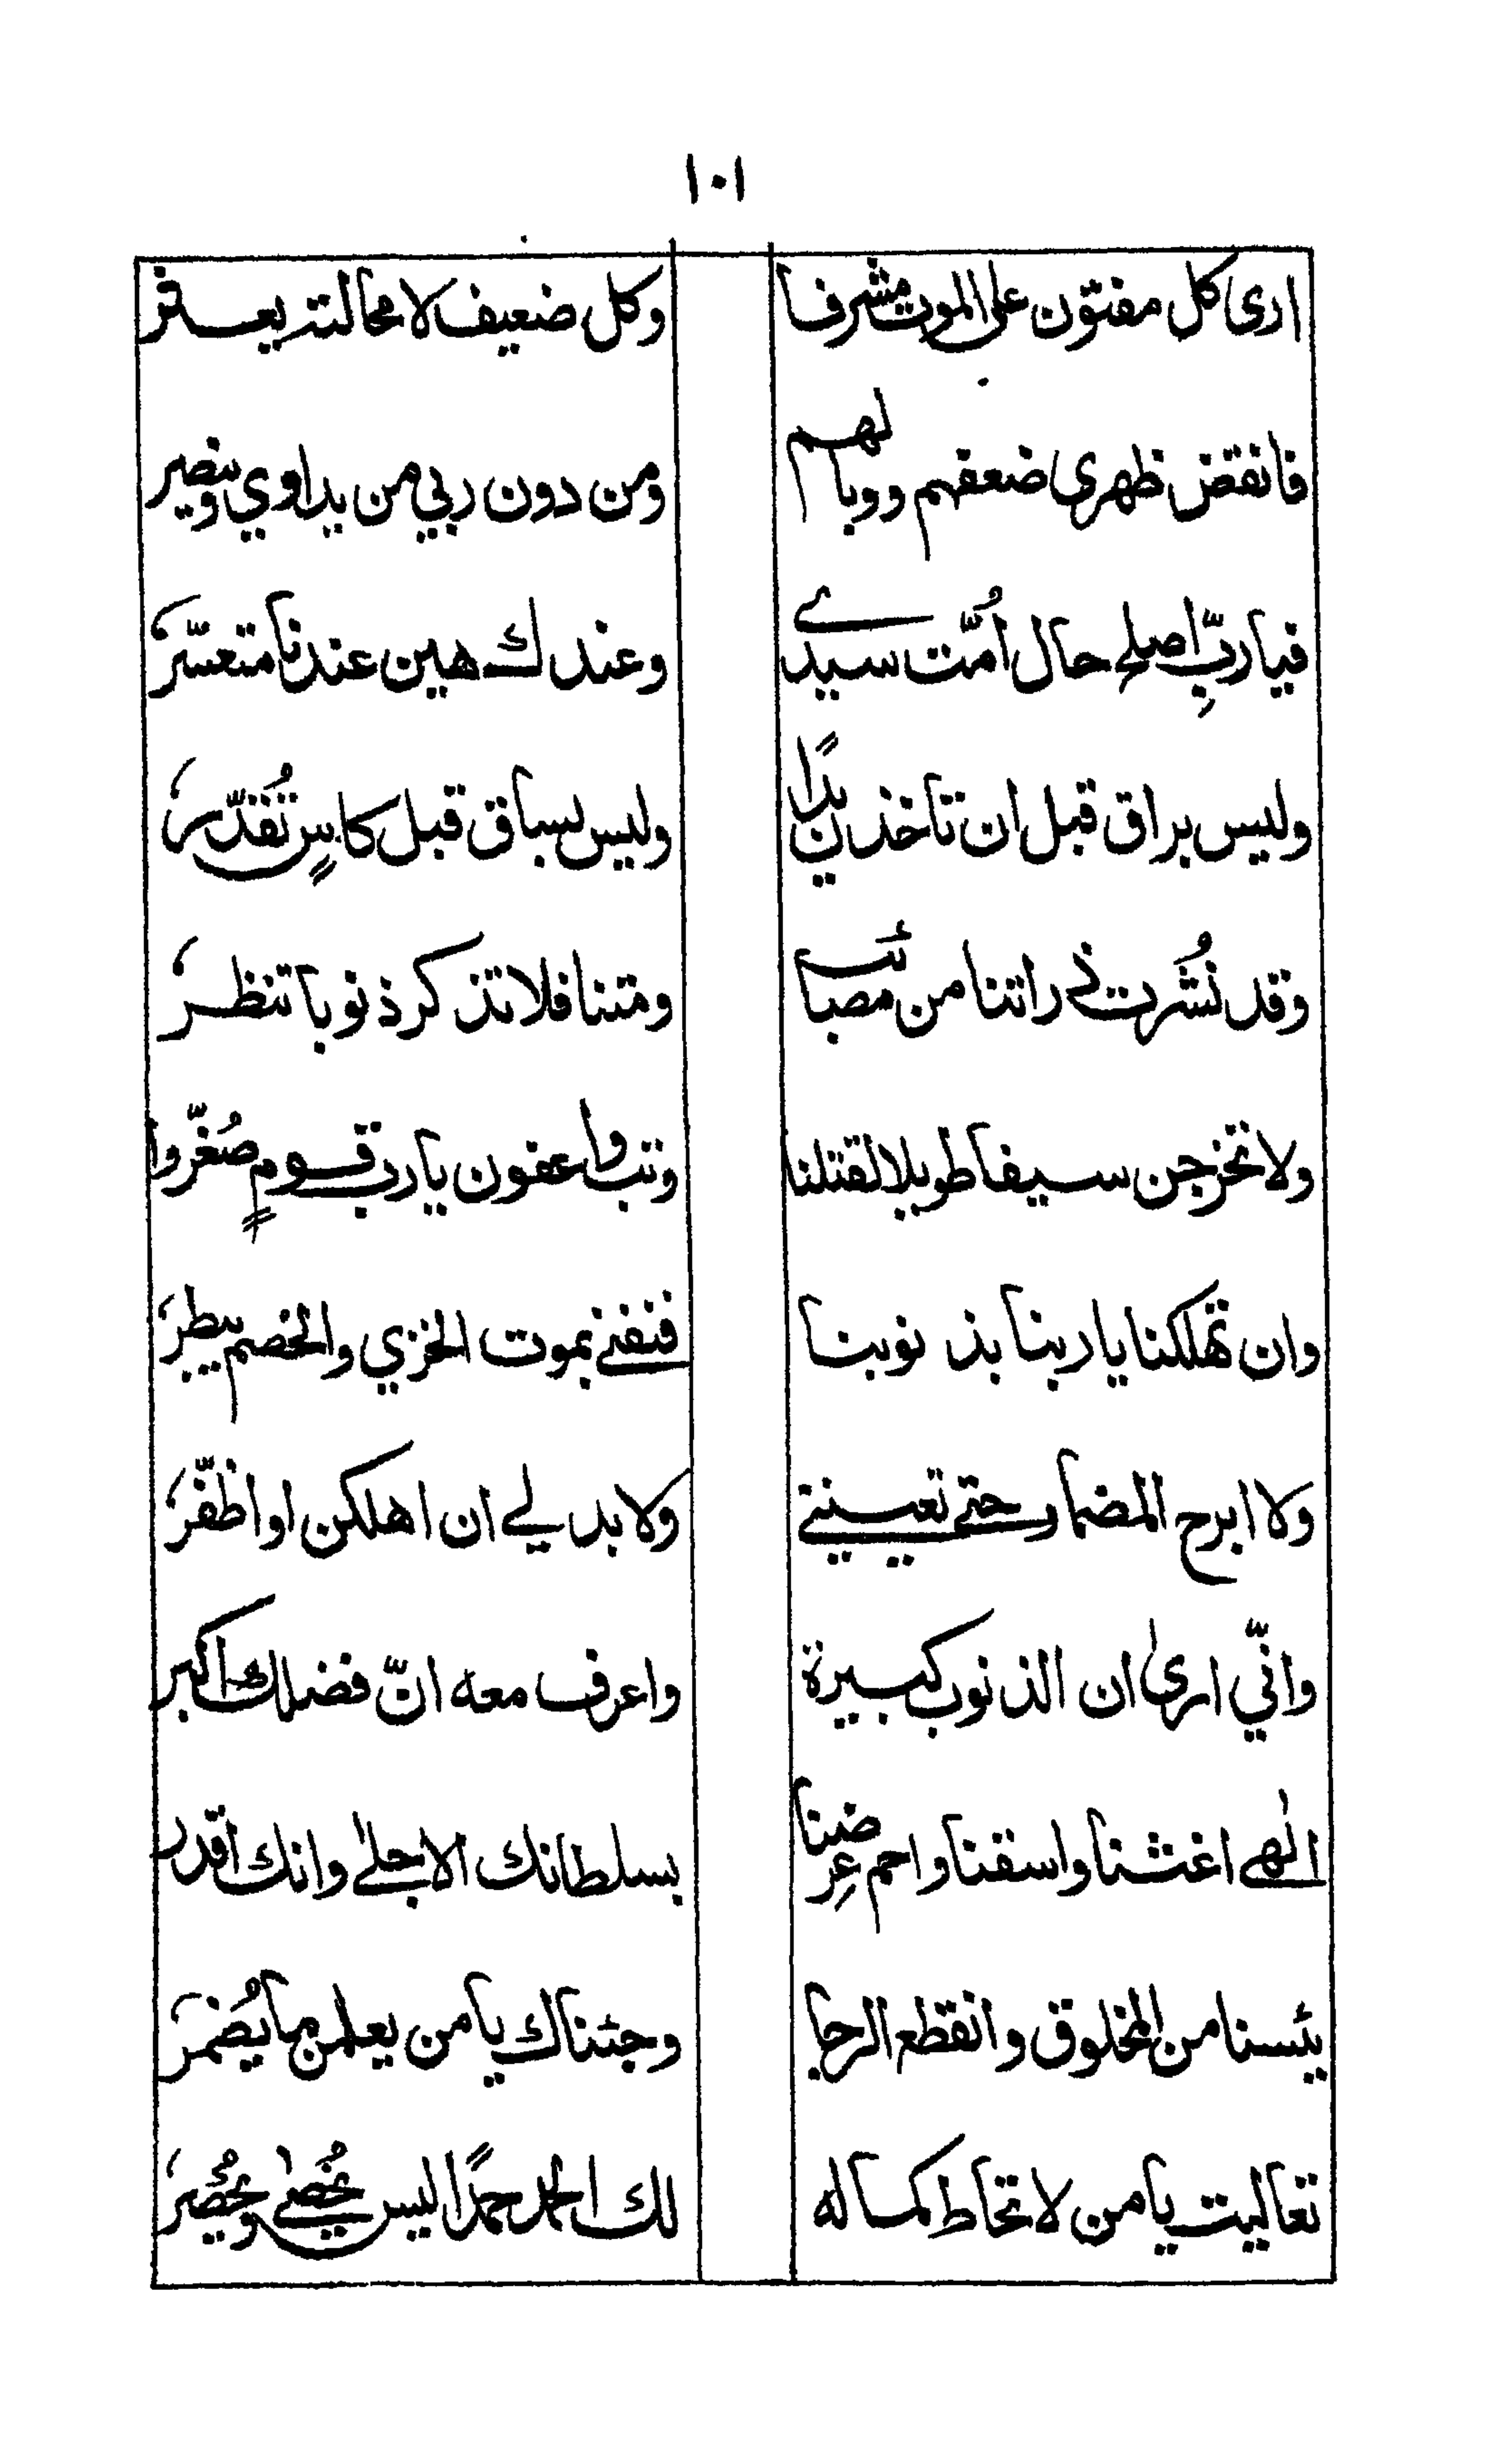 ١٠١
ارى كل مفتون على الموت مشرفا وكل ضعيف لا محالة يعسر
فانقض ظهرى ضعفهم ووبالهم ومن دون ربي من يداوي وينصر
فيا ربِّ اصلح حال اُمّت سيدى وعندك هين عندنا متعسّر
وليس براق قبل ان تاخذن يدًا وليس بساق قبل كاسٍ تُقدّر
وقد نُشّرت ذراتنا من مصائب ومتنا فلا تذكر ذنوبا تنظر
ولا تخرجن سيفا طويلا لقتلنا وتب واعفون يا رب قومٍ صُغّروا
وان تهلكنا يا ربنا بذنوبنا فنفنى بموت الخزي والخصم يبطر
ولا ابرح المضمار حتى تعيننى ولا بد لى ان اهلكن او اظفّر
وانّي ارىٰ ان الذنوب كبيرة واعرف معه انّ فضلك اكبر
الٰهى اغثنا واسقنا واحم عِرضنا بسلطانك الاجلىٰ وانك اقدر
يئسنا من المخلوق وانقطع الرجا وجئناك يا من يعلمن ما يُضمر
تعاليت يا من لا تحاط كماله لك الحمد حمدًا ليس يُحصىٰ ويُحصر